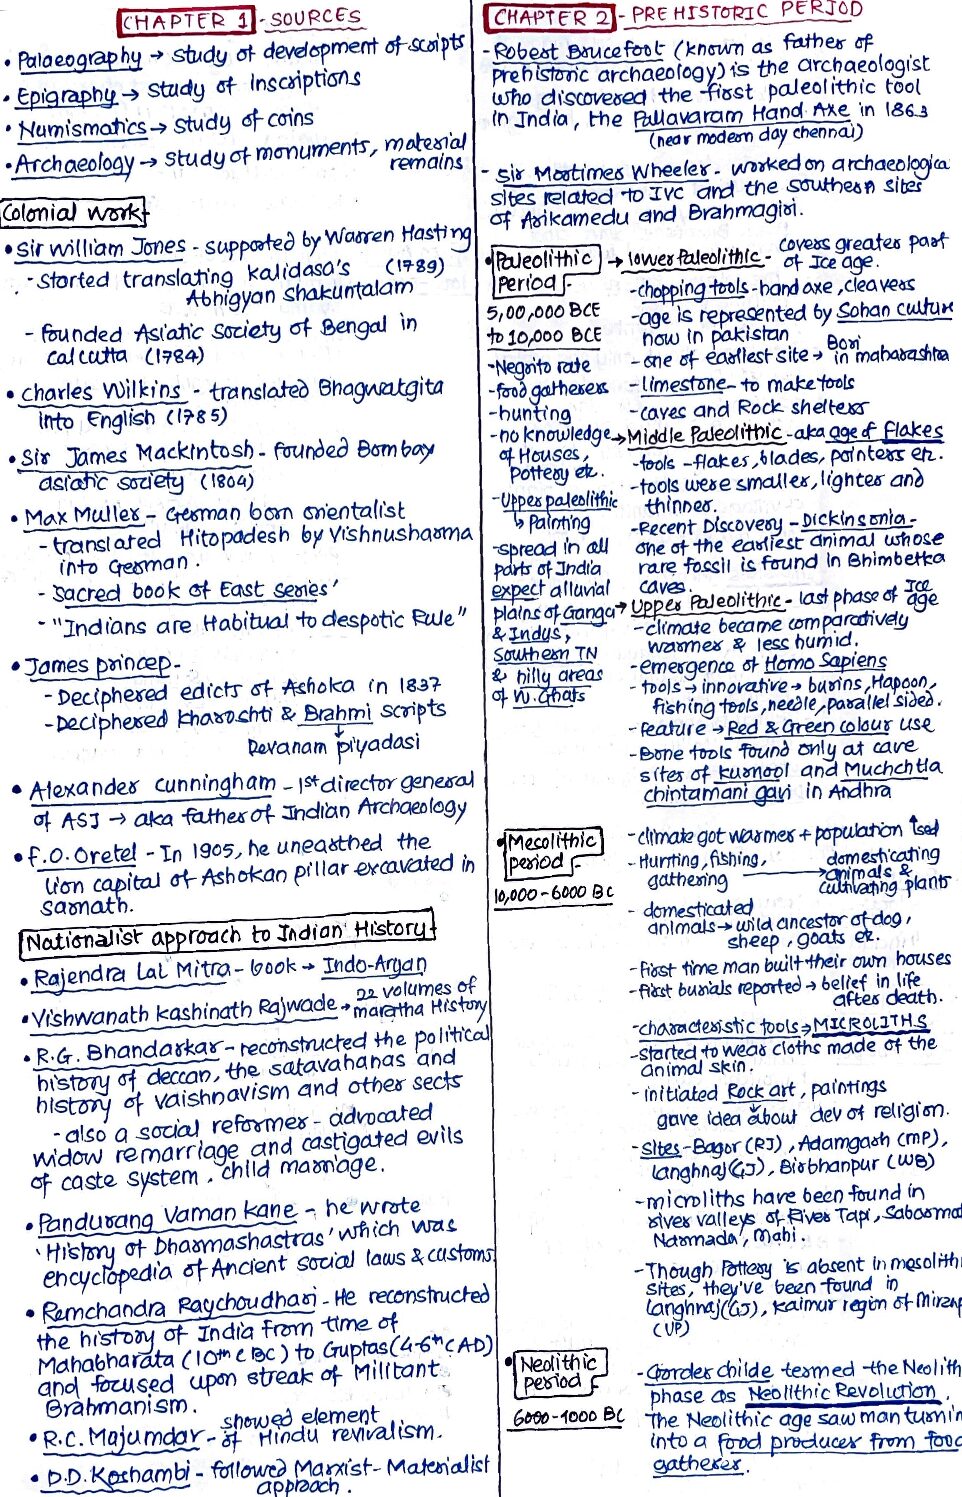 CHAPTER 1 - SOURCES
• Palaeography → study of development of scripts
• Epigraphy → study of Inscriptions
• Numismatics → study of coins
• Archaeology → study of monuments, material
remains
Colonial work
• Sir William Jones - supported by Warren Hasting
- Started translating Kalidasa's (1789)
Abhigyan Shakuntalam
- founded Asiatic Society of Bengal in
Calcutta (1784)
• Charles Wilkins - translated Bhagwatgita
into English (1785)
• Sir James Mackintosh - founded Bombay
asiatic society (1804)
• Max Muller - German born orientalist
- translated Hitopadesh by Vishnusharma
into German.
- Sacred book of East series'
- "Indians are Habitual to despotic Rule"
• James princep -
- Deciphered edicts of Ashoka in 1837
- Deciphered Kharoshti & Brahmi scripts
Devanam piyadasi
• Alexander Cunningham - 1st director general
of ASI → aka father of Indian Archaeology
• F.O. Oretel - In 1905, he unearthed the
lion capital of Ashokan pillar excavated in
sarnath.
Nationalist approach to Indian History
• Rajendra Lal Mitra - book → Indo-Aryan
• Vishwanath Kashinath Rajwade → 22 volumes of
maratha History
• R.G. Bhandarkar - reconstructed the political
history of deccan, the satavahanas and
history of vaishnavism and other sects
- also a social reformer - advocated
widow remarriage and castigated evils
of caste system, child marriage.
• Pandurang Vaman Kane - he wrote
'History of Dharmashastras' which was
encyclopedia of Ancient social laws & customs
• Remchandra Raychoudhari - He reconstructed
the history of India from time of
Mahabharata (10th C BC) to Guptas (4-6th C AD)
and focused upon streak of Militant
Brahmanism.
• R.C. Majumdar - showed element
of Hindu revivalism.
• D.D. Koshambi - followed Marxist - Materialist
approach.
CHAPTER 2 - PREHISTORIC PERIOD
- Robert Brucefoot (known as father of
prehistoric archaeology) is the archaeologist
who discovered the first paleolithic tool
in India, the Pallavaram Hand Axe in 1863
(near modern day chennai)
- Sir Mortimer Wheeler - worked on archaeologica
sites related to IVC and the southern sites
of Arikamedu and Brahmagiri.
• Paleolithic
Period -
5,00,000 BCE
to 10,000 BCE
- Negrito rate
- food gatherers
- hunting
- no knowledge
of Houses,
Pottery etc.
- Upper paleolithic
↳ Painting
- spread in all
parts of India
expect alluvial
plains of Ganga
& Indus,
Southern TN
& hilly areas
of W. Ghats
→ lower Paleolithic - covers greater part
of Ice age.
- chopping tools - hand axe, cleavers
- age is represented by Sohan culture
now in pakistan
- one of earliest site → Bori
in maharashtra
- limestone - to make tools
- caves and Rock shelters
→ Middle Paleolithic - aka age of flakes
- tools - flakes, blades, pointers etc.
- tools were smaller, lighter and
thinner.
- Recent Discovery - Dickinsonia -
one of the earliest animal whose
rare fossil is found in Bhimbetka
caves.
→ Upper Paleolithic - last phase of Ice
age
- climate became comparatively
warmer & less humid.
- emergence of Homo Sapiens
- tools → innovative → burins, Hapoon,
fishing tools, needle, parallel sided.
- feature → Red & Green colour use
- Bone tools found only at cave
sites of kurnool and Muchchtla
chintamani gavi in Andhra
• Mesolithic
period -
10,000 - 6000 BC
- climate got warmer + population ↑sed
- Hunting, fishing,
gathering → domesticating
animals &
cultivating plants
- domesticated
animals → wild ancestor of dog,
sheep, goats etc.
- first time man built their own houses
- first burials reported → belief in life
after death.
- characteristic tools → MICROLITHS
- Started to wear cloths made of the
animal skin.
- initiated Rock art, paintings
gave idea about dev of religion.
- Sites - Bagor (RJ), Adamgarh (MP),
Langhnaj (GJ), Birbhanpur (WB)
- microliths have been found in
river valleys of River Tapi, Sabarmat
Narmada, mahi.
- Though Pottery is absent in mesolithi
sites, they've been found in
Langhnaj (GJ), Kaimur regin of Mirzap
(UP)
• Neolithic
period -
6000 - 1000 BC
- Gorder childe termed the Neolith
phase as Neolithic Revolution.
The Neolithic age saw man turnin
into a food producer from food
gatherer.